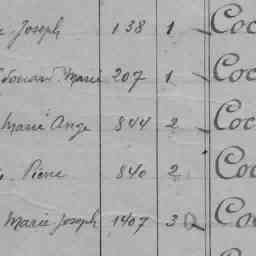 Joseph 138 1 Coc
Edouard Marie 207 1 Coc
Marie Ange 844 2 Coc
Pierre 840 2 Coc
Marie Joseph 1407 3 Coc